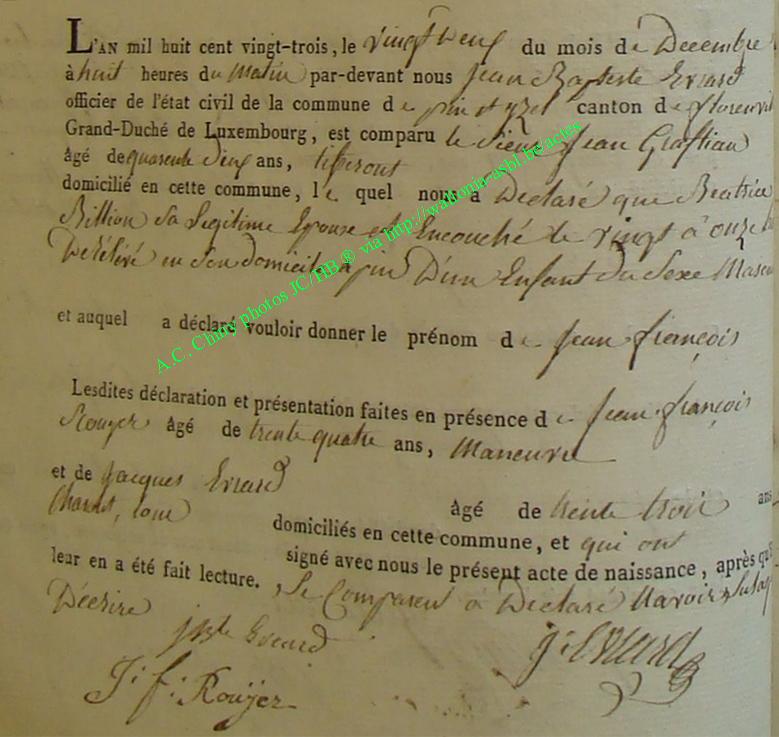 L'AN mil huit cent vingt-trois, le vingt deux du mois de Decembre
à huit heures du Matin par-devant nous Jean Baptiste Evrard
officier de l'état civil de la commune de pin et yzel canton de florenvil
Grand-Duché de Luxembourg, est comparu le Sieur Jean Grastian
âgé de quarente deux ans, tiseront
domicilié en cette commune, le quel nous à Declaré que Beatrice
Billion Sa Legitime Epouse est Encouché le vingt à onze
en Son domicile à pin D'un Enfant du Sexe Mascu
et auquel a déclaré vouloir donner le prénom de Jean françois
Lesdites déclaration et présentation faites en présence de Jean françois
Rouyer âgé de trente quatre ans, Maneuvre
et de Jacques Evrard
âgé de trente trois ans
domiciliés en cette commune, et qui ont
signé avec nous le présent acte de naissance, après que
leur en a été fait lecture. , Le Comparent à Declaré
Décrire
jbte Evrard
j: Evrard
J: f: Rouÿer
A.C. Chiny photos JC/HB ® via http://wallonia-asbl.be/actes